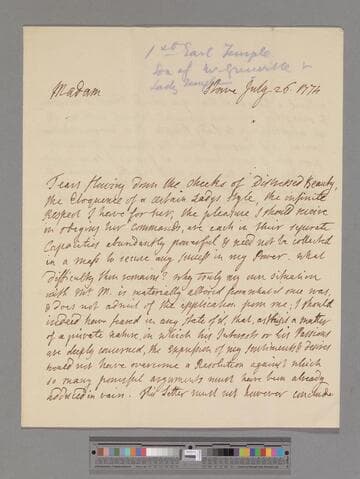 1st Earl Temple
Son of Mr Grenville &
Lady Temple
Madam
Stowe July 26. 1774
Tears flowing down the cheeks of Distressed Beauty,
the Eloquence of a certain Ladys Style, the infinite
Respect I have for her, the pleasure I should receive
in obeying her Commands, are each in their seperate
Capacities abundantly powerful & need not be collected
in a mass to secure any Suit in my Power. What
difficulty then remains? why truly my own situation
with Mr M. is materially altered from what it once was,
& does not admit of the application from me; I should
indeed have feared in any State of it, that, as this is a matter
of a private nature, in which his Interests or his Passions
are deeply concerned, the Expression of my Sentiments & desires
would not have overcome a Resolution against which
so many powerful arguments must have been already
adduced in vain. This Letter must not however conclude